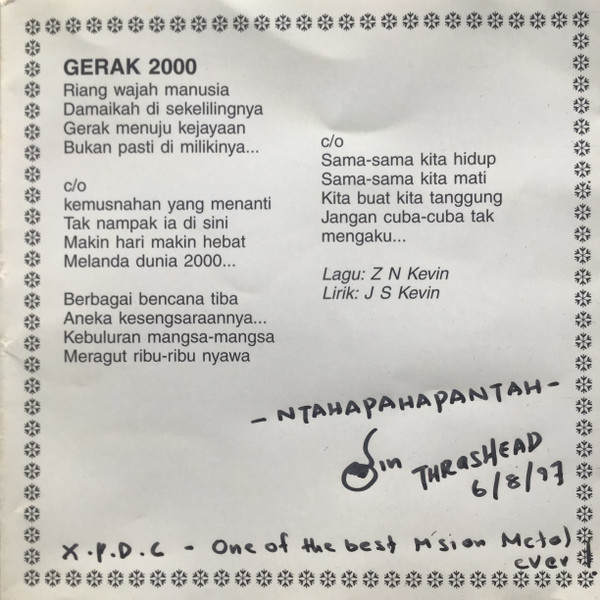 GERAK 2000
Riang wajah manusia
Damaikah di sekelilingnya
Gerak menuju kejayaan
Bukan pasti di milikinya...
c/o
kemusnahan yang menanti
Tak nampak ia di sini
Makin hari makin hebat
Melanda dunia 2000...
Berbagai bencana tiba
Aneka kesengsaraannya...
Kebuluran mangsa-mangsa
Meragut ribu-ribu nyawa
c/o
Sama-sama kita hidup
Sama-sama kita mati
Kita buat kita tanggung
Jangan cuba-cuba tak
mengaku...
Lagu: Z N Kevin
Lirik: J S Kevin
- NTAHAPAHAPANTAH -
THRasHEAD
6/8/97
X.P.D.C - One of the best M'sian Metal
ever!